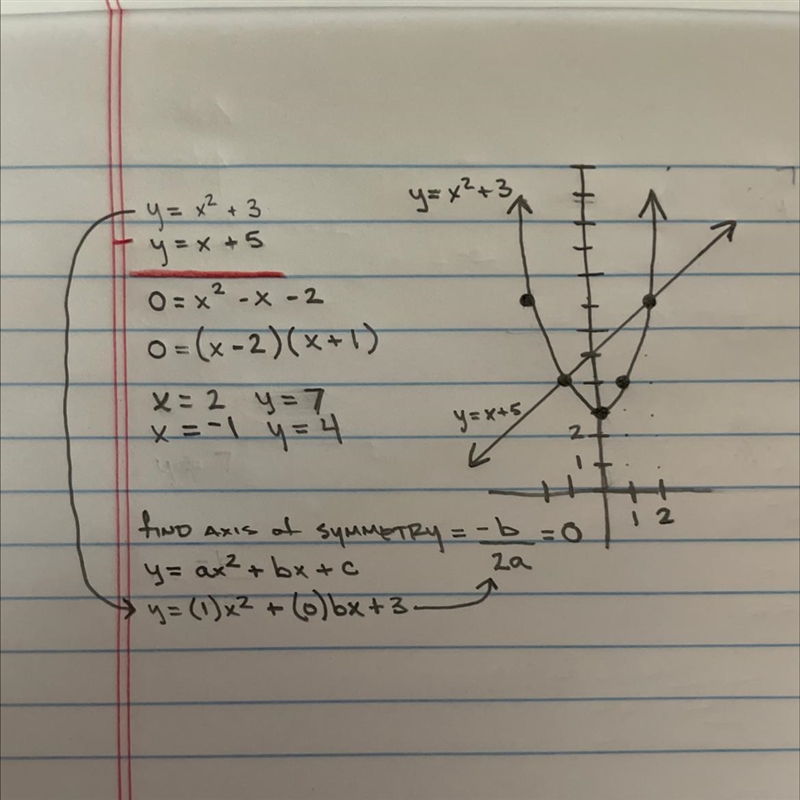 y = x² + 3
y = x + 5
0 = x² - x - 2
0 = (x - 2)(x + 1)
x = 2 y = 7
x = -1 y = 4
y = x² + 3
y = x + 5
2
1
1 2
FIND AXIS of SYMMETRY = -b/2a = 0
y = ax² + bx + c
y = (1)x² + (0)bx + 3